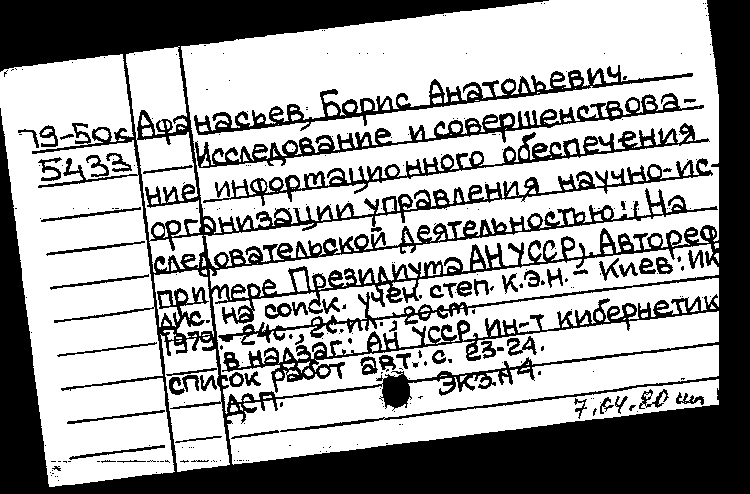 79-50к Афанасьев, Борис Анатольевич.
5433 Исследование и совершенствова-
ние информационного обеспечения
организации управления научно-ис-
следовательской деятельностью: (На
примере Президиума АН УССР). Автореф
дис. на соиск. учен. степ. к.э.н. - Киев: ИК
1979. - 24с., 2с.ил.; 20см.
В надзаг.: АН УССР, ин-т кибернетик
список работ авт.: с. 23-24.
ДСП. Экз.№4.
7.04.80